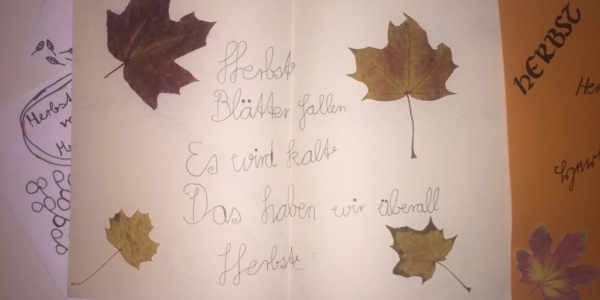 Herbst
Blätter fallen
Es wird kalt
Das haben wir überall
Herbst
Herbst
HERBST